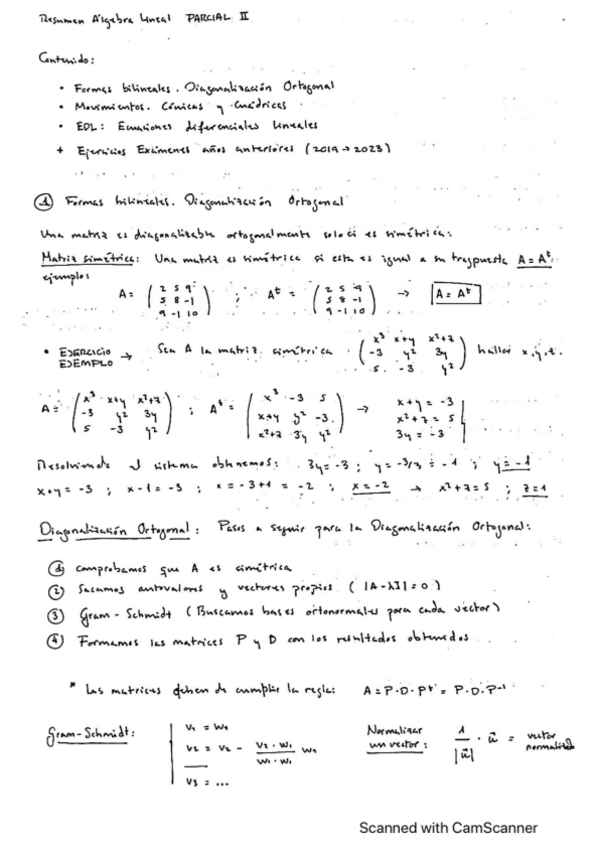 Resumen Álgebra Lineal PARCIAL II
Contenido:
• Formas bilineales. Diagonalización Ortogonal
• Movimientos. Cónicas y Cuádricas
• EDL: Ecuaciones diferenciales lineales
+ Ejercicios Exámenes años anteriores (2019 → 2023)
① Formas bilineales. Diagonalización Ortogonal
Una matriz es diagonalizable ortogonalmente solo si es simétrica:
Matriz simétrica: Una matriz es simétrica si esta es igual a su traspuesta A = Aᵗ.
ejemplo:
A = ( 2 5 9 ; 5 8 -1 ; 9 -1 10 ) ; Aᵗ = ( 2 5 9 ; 5 8 -1 ; 9 -1 10 ) → A = Aᵗ
• EJERCICIO EJEMPLO → Sea A la matriz simétrica ( x³ x+y x²+z ; -3 y² 3y ; 5 -3 y² ) hallar x, y, z.
A = ( x³ x+y x²+z ; -3 y² 3y ; 5 -3 y² ) ; Aᵗ = ( x³ -3 5 ; x+y y² -3 ; x²+z 3y y² ) → x+y = -3
x²+z = 5
3y = -3
Resolviendo el sistema obtenemos: 3y = -3 ; y = -3/3 = -1 ; y = -1
x+y = -3 ; x-1 = -3 ; x = -3+1 = -2 ; x = -2 → x²+z = 5 ; z = 1
Diagonalización Ortogonal: Pasos a seguir para la Diagonalización Ortogonal:
① Comprobamos que A es simétrica
② Sacamos autovalores y vectores propios ( |A-λI| = 0 )
③ Gram-Schmidt (Buscamos bases ortonormales para cada vector)
④ Formamos las matrices P y D con los resultados obtenidos
* Las matrices deben de cumplir la regla: A = P·D·Pᵗ = P·D·P⁻¹
Gram-Schmidt: V₁ = W₁
V₂ = V₂ - (V₂·W₁ / W₁·W₁) W₁
V₃ = ...
Normalizar un vector: 1/|ū| · ū = vector normalizado
Scanned with CamScanner